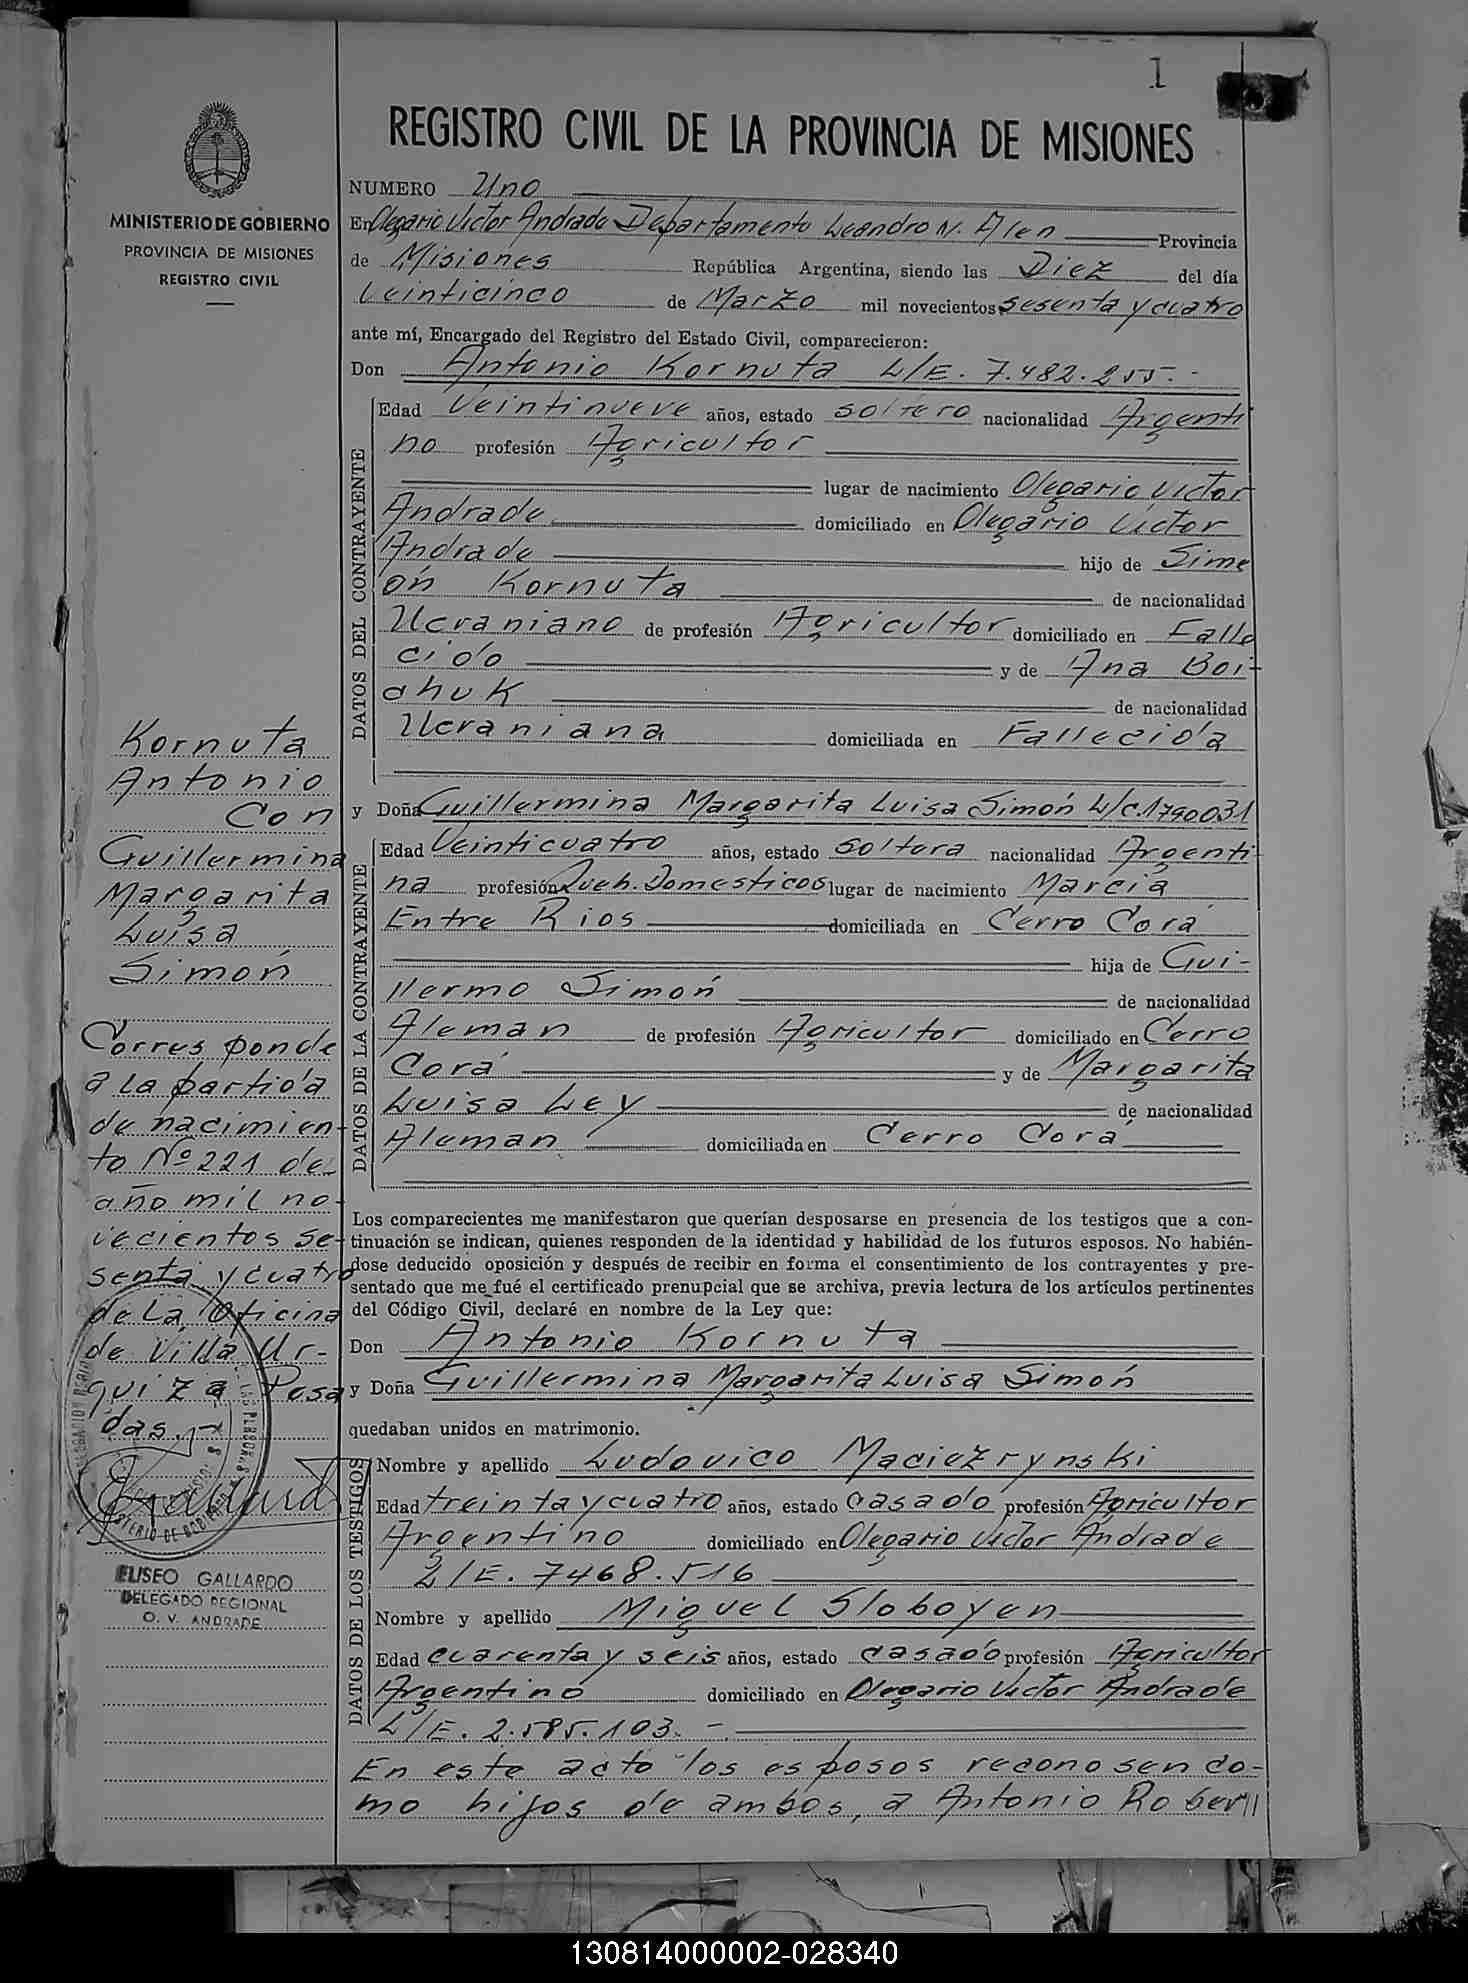 1
REGISTRO CIVIL DE LA PROVINCIA DE MISIONES
MINISTERIO DE GOBIERNO
PROVINCIA DE MISIONES
REGISTRO CIVIL
NUMERO Uno
En Olegario Victor Andrade Departamento Leandro N. Alen Provincia
de Misiones República Argentina, siendo las Diez del día
Veinticinco de Marzo mil novecientos sesenta y cuatro
ante mí, Encargado del Registro del Estado Civil, comparecieron:
Don Antonio Kornuta L/E. 7.482.255.-
DATOS DEL CONTRAYENTE
Edad Veintinueve años, estado soltero nacionalidad Argenti
no profesión Agricultor
lugar de nacimiento Olegario Victor
Andrade domiciliado en Olegario Victor
Andrade hijo de Sime
ón Kornuta de nacionalidad
Ucraniano de profesión Agricultor domiciliado en Falle
cido y de Ana Boi-
chuk de nacionalidad
Ucraniana domiciliada en Fallecida
y Doña Guillermina Margarita Luisa Simón L/C.1790031
DATOS DE LA CONTRAYENTE
Edad Veinticuatro años, estado Soltera nacionalidad Argenti
na profesión Queh. Domesticos lugar de nacimiento Marcia
Entre Rios domiciliada en Cerro Corá
hija de Gui-
llermo Simón de nacionalidad
Aleman de profesión Agricultor domiciliado en Cerro
Corá y de Margarita
Luisa Ley de nacionalidad
Aleman domiciliada en Cerro Corá
Los comparecientes me manifestaron que querían desposarse en presencia de los testigos que a con-
tinuación se indican, quienes responden de la identidad y habilidad de los futuros esposos. No habién-
dose deducido oposición y después de recibir en forma el consentimiento de los contrayentes y pre-
sentado que me fué el certificado prenupcial que se archiva, previa lectura de los artículos pertinentes
del Código Civil, declaré en nombre de la Ley que:
Don Antonio Kornuta
y Doña Guillermina Margarita Luisa Simón
quedaban unidos en matrimonio.
DATOS DE LOS TESTIGOS
Nombre y apellido Ludovico Maciezrynski
Edad treinta y cuatro años, estado casado profesión Agricultor
Argentino domiciliado en Olegario Victor Andrade
L/E. 7468.516
Nombre y apellido Miguel Sloboyen
Edad cuarenta y seis años, estado casado profesión Agricultor
Argentino domiciliado en Olegario Victor Andrade
L/E. 2.585.103.-
En este acto los esposos reconosen co-
mo hijos de ambos, a Antonio Robert
Kornuta
Antonio
Con
Guillermina
Margarita
Luisa
Simón
Corresponde
a la partida
de nacimien-
to Nº 221 de
año mil no-
vecientos se-
senta y cuatro
de la Oficina
de Villa Ur-
quiza Posa
das.
ELISEO GALLARDO
DELEGADO REGIONAL
O. V. ANDRADE
130814000002-028340